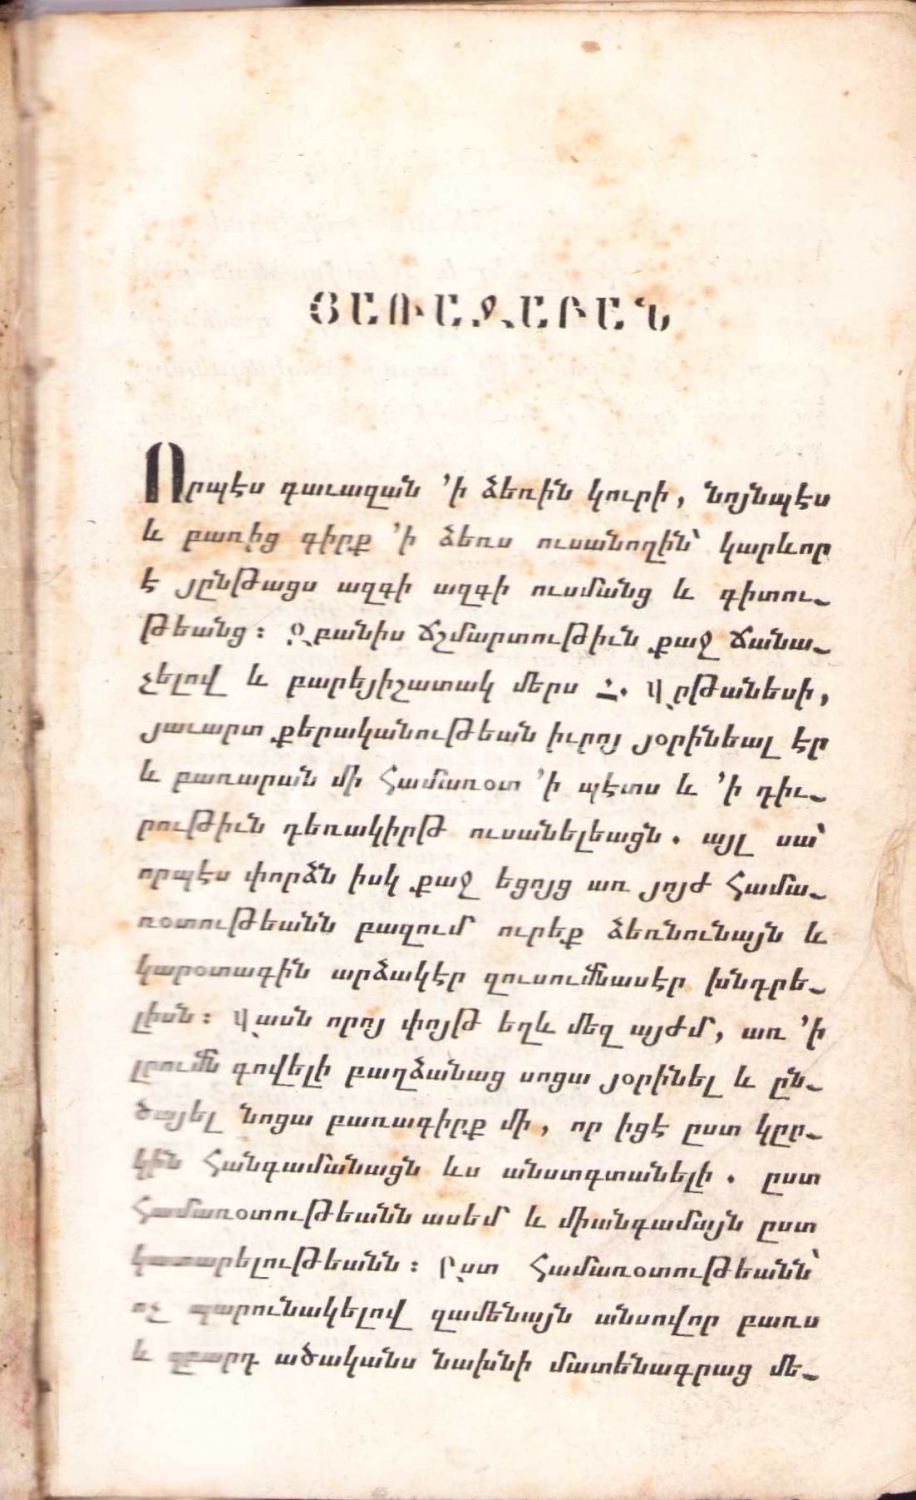 ՅԱՌԱՋԱԲԱՆ
Որպէս գաւազան ՚ի ձեռին կուրի, նոյնպէս
և բառից գիրք ՚ի ձեռս ուսանողին՝ կարևոր
է յընթացս ազգի ազգի ուսմանց և գիտու֊
թեանց։ Զբանիս ճշմարտութիւն քաջ ճանա֊
չելով և բարեյիշատակ մերս Հ. Վրթանեսի,
յաւարտ քերականութեան իւրոյ յօրինեալ էր
և բառարան մի համառօտ ՚ի պէտս և ՚ի դիւ֊
րութիւն դեռակիրթ ուսանելեացն. այլ սա՝
որպէս փորձն իսկ քաջ եցոյց առ յոյժ համա֊
ռօտութեանն բազում ուրեք ձեռնունայն և
կարօտագին արձակէր զուսումնասէր խնդրե֊
լիսն։ Վասն որոյ փոյթ եղև մեզ այժմ, առ ՚ի
լրումն գովելի բաղձանաց սոցա յօրինել և ըն֊
ծայել նոցա բառագիրք մի, որ իցէ ըստ կըր֊
կին հանգամանացն ևս անստգտանելի. ըստ
համառօտութեանն ասեմ և միանգամայն ըստ
կատարելութեանն։ Ըստ համառօտութեանն՝
ոչ պարունակելով զամենայն անսովոր բառս
և զբարդ ածականս նախնի մատենագրաց մե֊